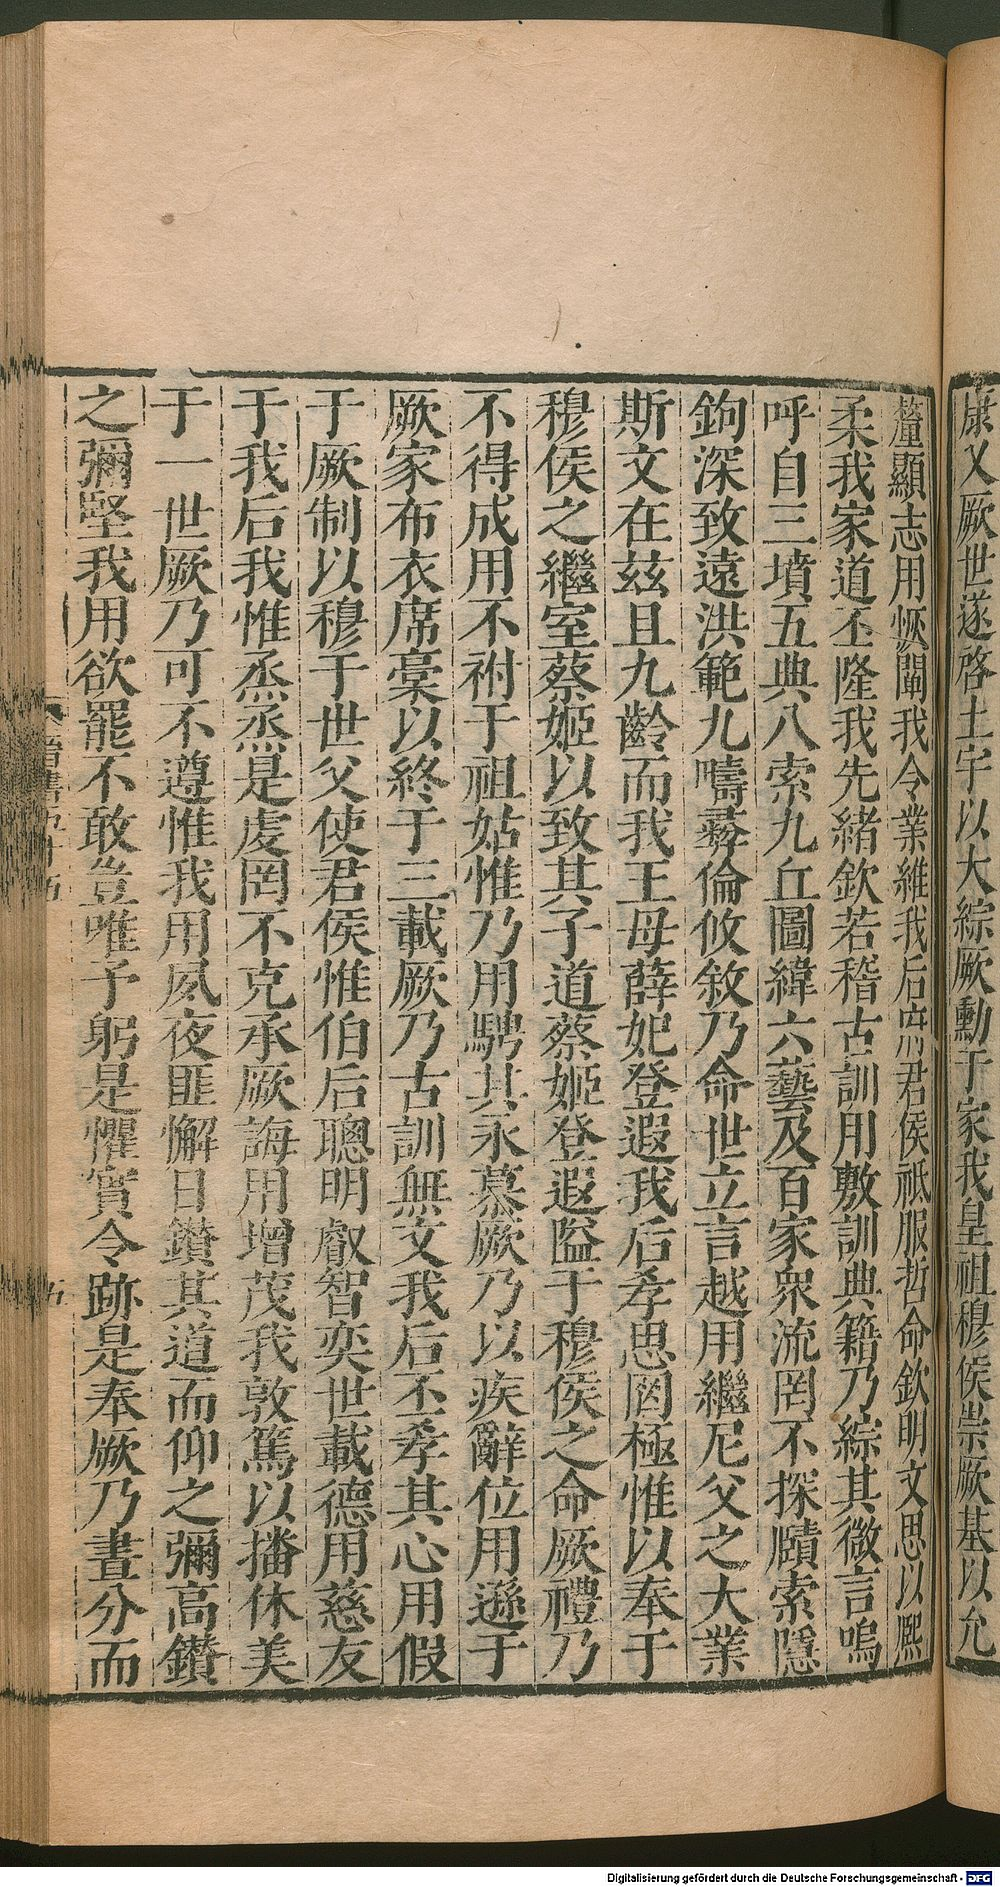 康乂厥世遂啓土宇以大綜厥勳于家我皇祖穆侯崇厥基以允
釐顯志用恢闡我令業維我后府君侯祗服哲命欽明文思以熙
柔我家道丕隆我先緒欽若稽古訓用敷訓典籍乃綜其微言嗚
呼自三墳五典八索九丘圖緯六藝及百家衆流罔不探賾索隱
鉤深致遠洪範九疇彝倫攸敘乃命世立言越用繼尼父之大業
斯文在茲且九齡而我王母薛妃登遐我后孝思罔極惟以奉于
穆侯之繼室蔡姬以致其子道蔡姬登遐隘于穆侯之命厥禮乃
不得成用不祔于祖姑惟乃用騁其永慕厥乃以疾辭位用遜于
厥家布衣席稾以終于三載厥乃古訓無文我后丕孝其心用假
于厥制以穆于世父使君侯惟伯后聰明叡智奕世載德用慈友
于我后我惟烝烝是虔罔不克承厥誨用增茂我敦篤以播休美
于一世厥乃可不遵惟我用夙夜匪懈日鑽其道而仰之彌高鑽
之彌堅我用欲罷不敢豈唯予躬是懼實令跡是奉厥乃晝分而
晉書五十五
五
Digitalisierung gefördert durch die Deutsche Forschungsgemeinschaft - DFG